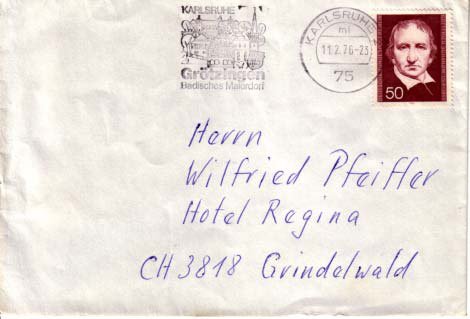 KARLSRUHE
Grötzingen
Badisches Malerdorf
KARLSRUHE
mi
11.2.76-23
75
50
Herrn
Wilfried Pfeiffer
Hotel Regina
CH 3818 Grindelwald